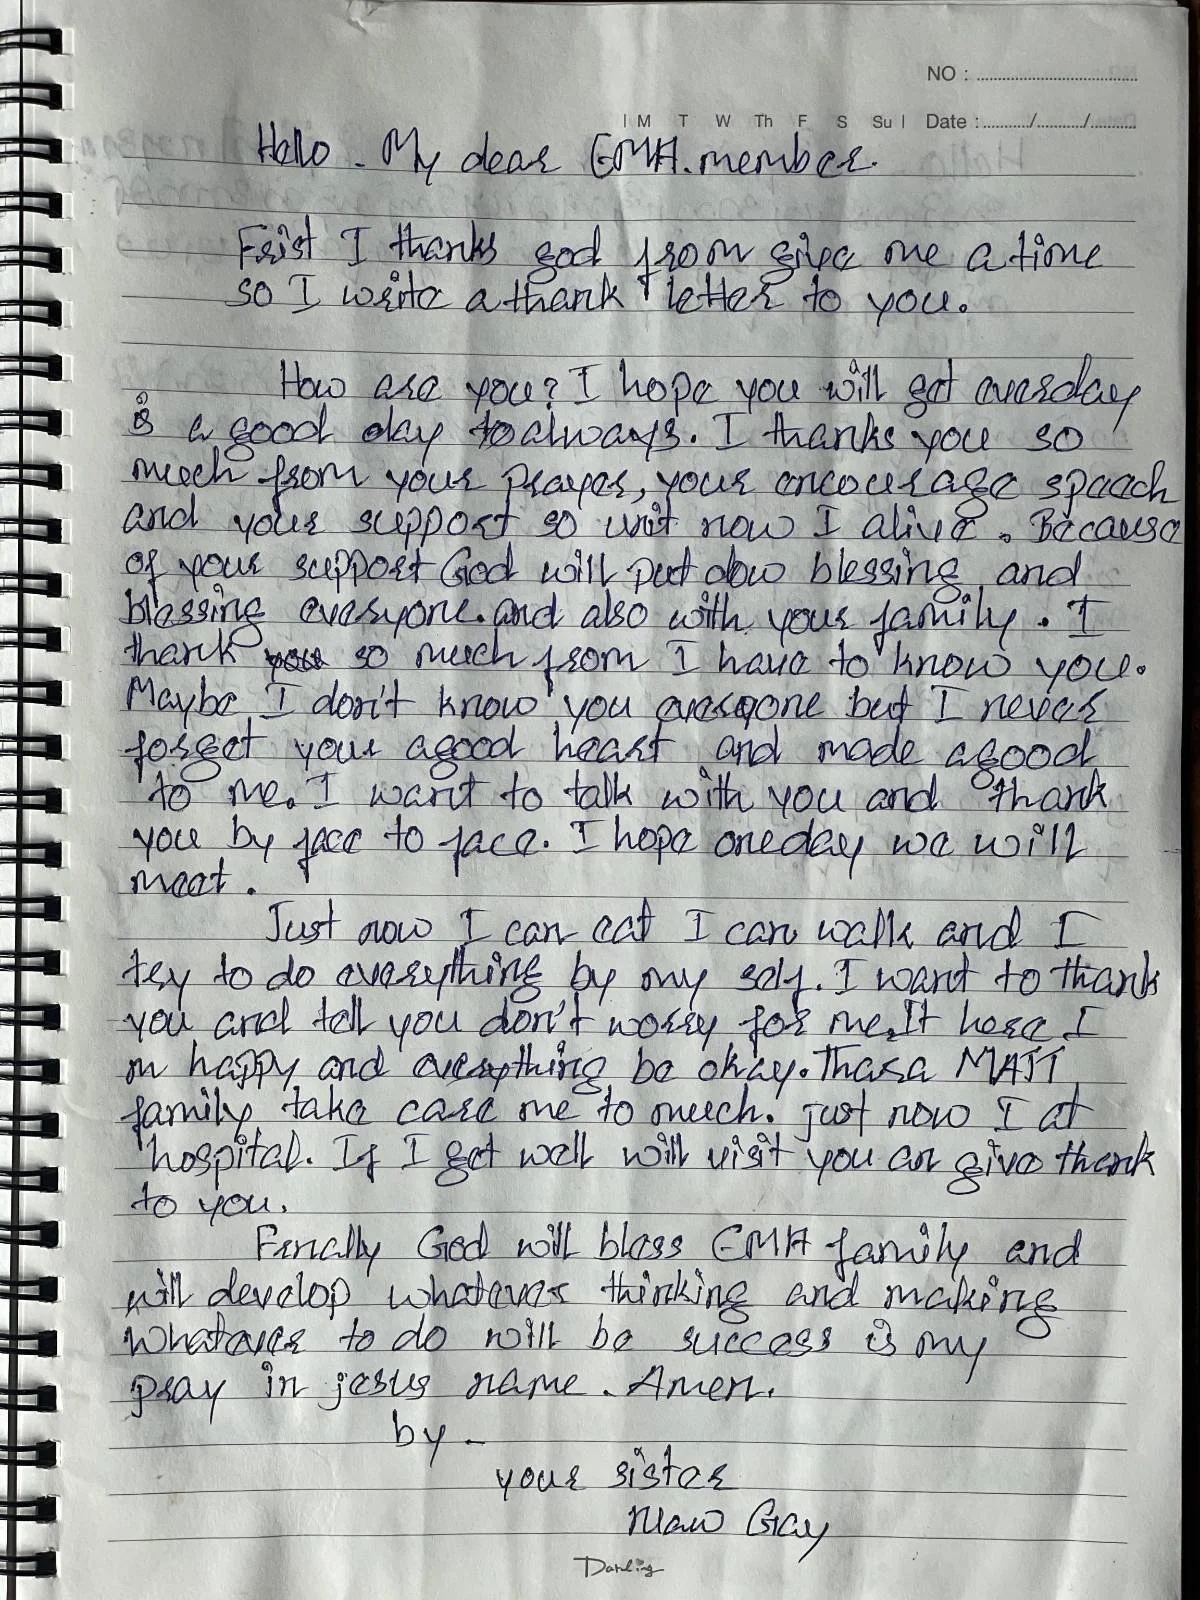 NO :
M T W Th F S Su Date : / /
Hello. My dear EMA. member.
Frist I thanks god from give me a time
so I write a thank letter to you.
How are you? I hope you will get everday
is a good day to always. I thanks you so
much from your prayer, your encourage speach
and your support so unit now I alive. Because
of your support God will put dow blessing and
blessing everyone. and also with your family. I
thank you so much from I have to know you.
Maybe I don't know you everyone but I never
forget your a good heart and made a good
to me. I want to talk with you and thank
you by face to face. I hope oneday we will
meet.
Just now I can eat I can walk and I
try to do everything by my self. I want to thank
you and tell you don't worry for me. It here I
m happy and everything be okay. Thara MATT
family take care me to much. just now I at
hospital. If I get well will visit you an give thank
to you.
Finally God will bless EMA family and
will develop whatever thinking and making
whatever to do will be success is my
pray in jesus name. Amen.
by -
your sister
Maw Gay
Darling